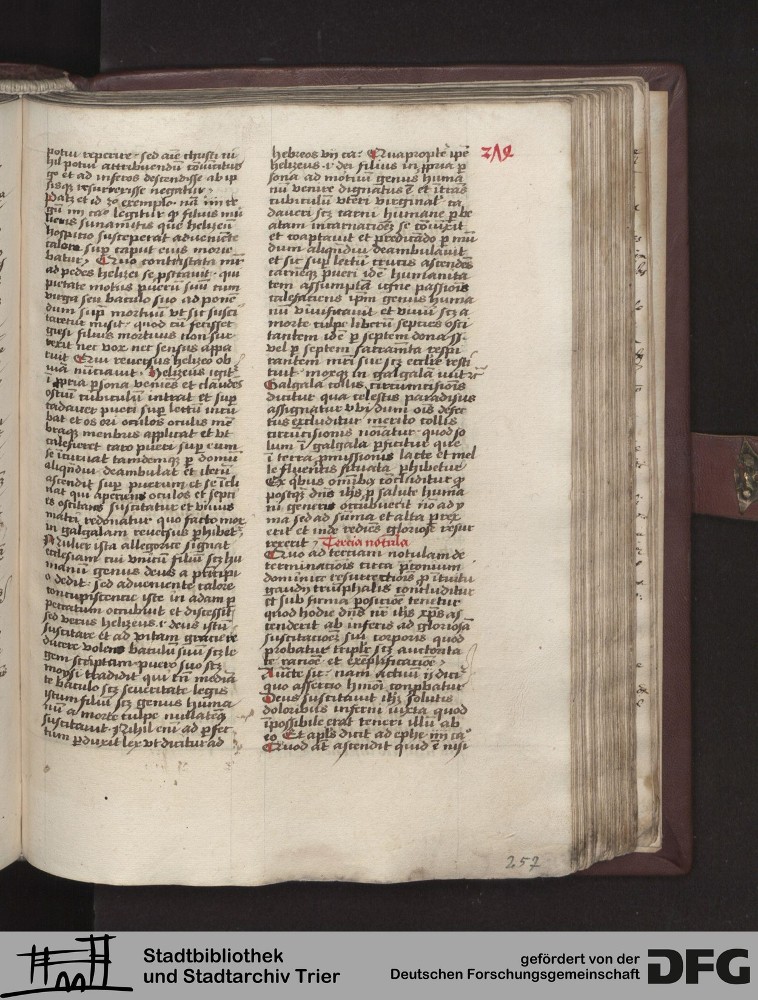 potui reperire · sed aīe christi ni
hil potui attribuendū
ge et ad inferos descendisse ab ip
sisqȝ resurrexisse negatur
Patȝ et id exemplo · nā iiii re
gū iiii ca° legitur qȝ filius mu
lieris sunamitis que helizeū
hospitio susceperat adveniēte
calore sup caput eius morie
batur · Quo contristata mr̄
ad pedes helizei se pstravit · qui
pietate motus puerū suū cum
virga seu baculo suo ad ponē
dum sup mortuū vt sic susci
taretur misit · quod cū fecisset
giesi filius mortuus non sur
rexit nec vox nec sensus appa
ruit Qui reversus helizeo ob
viā nūciavit · Helizeus igit̄
ī ppria psona veniēs et claudēs
ostiū cubiculū intrat et sup
cadaver pueri sup lectū incu
bat et os ori oculos oculis mē
braqȝ membris applicat et vt
calefieret caro pueri sup eum
se īcurvat tandemqȝ p domū
aliqndiu deambulat et iterū
ascendit sup puerum et se īcli
nat qui aperiens oculos et septi
es oscitans suscitatur et vivus
matri redonatur quo facto mox
in galgalam reversus phibet̄
Mulier ista allegorice signat
ecclesiam cui vnicū filiū scȝ hu
manū genus deus a pncipi
o dedit · sed adveniente calore
concupiscentie iste in adam p
peccatum occubuit et discessit
sed verus helizeus · i · deus istū
suscitare et ad vitam gracie re
ducere volens baculū suū scȝ le
gem scriptam puero suo scȝ
moysi tradidit qui tn̄ mediā
te baculo scȝ severitate legis
istum filiū scȝ genus huma
nū a morte culpe nullateqȝ
suscitavit · Nihil enī ad pfec
tum pduxit lex vt dicitur ad
hebreos vii ca° · Quapropter ipē
helizeus · i · dei filius in ppria p
sona ad mortuū genus humā
nū venire dignatus ē et intrās
cubiculū vteri virginal' ca
daveri scȝ carni humane p be
atam incarnacōeȝ se cōiūxit
et coaptavit et predicādo p mū
dum aliqndiu deambulavit
et sic sup lectū crucis ascendēs
carneqȝ pueri idē humanita
tem assumptā igne passiōis
calefaciens ipm genus huma
nū vivificavit et vivū scȝ a
morte culpe liberū septies osci
tantem idē p septem dona ss.
vel p septem sacramēta respi
rantem mri sue scȝ ecclie resti
tuit · moxqȝ in galgalā
Galgala collis circumcisiōis
dicitur qua celestis paradisus
assignatur vbi dum oīs defec
tus excluditur merito collis
circūcisionis noiatur · quod so
lum ī galgala pficitur que
ī terra pmissionis lacte et mel
le fluentis situata phibetur
Ex qbus omibȝ concluditur qȝ
postqȝ dns ihs p salute huma
ni generis occubuerit nō ad y
ma sed ad sūma et alta prex
erit et inde rediēs gloriose resur
rexerit · Tercia notula
Quo ad terciam notulam de
terminacōis circa pconium
dominice resurrectiōis p itinītu
gaudii triūphalis concluditur
et sub firma posicōe tenetur
quod hodie dns nr̄ ihs xps as
cenderit ab inferis ad gloriosā
suscitacōeȝ sui corporis quod
probatur triplr scȝ auctorita
te racōe et exēplificacōe ·
Aucte sic · nam actuū ii dici
quo assercio hmōi conpbatur
Deus suscitavit ihm solutis
doloribus inferni iuxta quod
īpossibile erat teneri illū ab
eo · Et apls dicit ad ephe iiii ca°
Quod aūt ascendit quid ē nisi
257
Stadtbibliothek
und Stadtarchiv Trier
gefördert von der
Deutschen Forschungsgemeinschaft
DFG